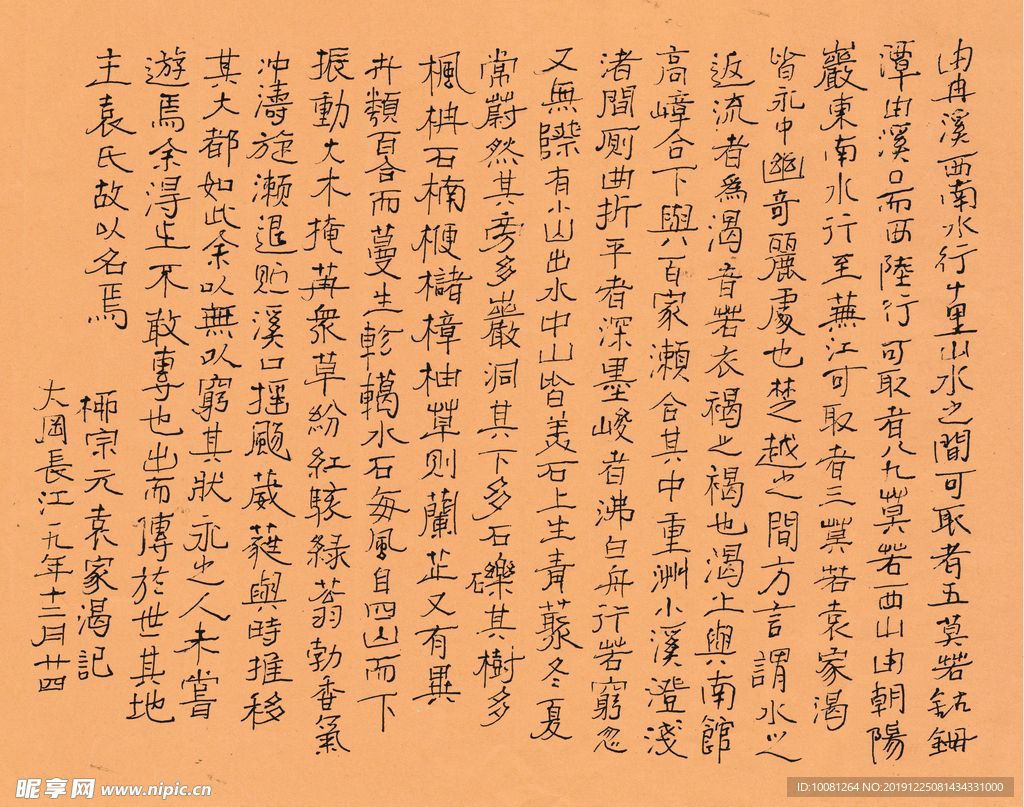 由冉溪西南水行十里山水之間可取者五莫若鈷鉧
潭由溪口而西陸行可取者八九莫若西山由朝陽
巖東南水行至蕪江可取者三莫若袁家渴
皆永中幽奇麗處也楚越之間方言謂水之
返流者為渴音若衣褐之褐也渴上與南館
高嶂合下與百家瀨合其中重洲小溪澄淺
渚間廁曲折平者深墨峻者沸白舟行若窮忽
又無際有小山出水中山皆美石上生青藂冬夏
常蔚然其旁多巖洞其下多石礫其樹多
楓柟石楠楩櫧樟柚草則蘭芷又有異
卉類百合而蔓生轇轕水石每風自四山而下
振動大木掩苒眾草紛紅駭綠蓊勃香氣
沖濤旋瀨退貯溪口搖颺葳蕤與時推移
其大都如此余以無以窮其狀永之人未嘗
遊焉余得之不敢專也出而傳於世其地
主袁氏故以名焉
柳宗元袁家渴記
大岡長江一九年十二月廿四
昵享网 www.nipic.cn
ID:10081264 NO:20191225081434331000